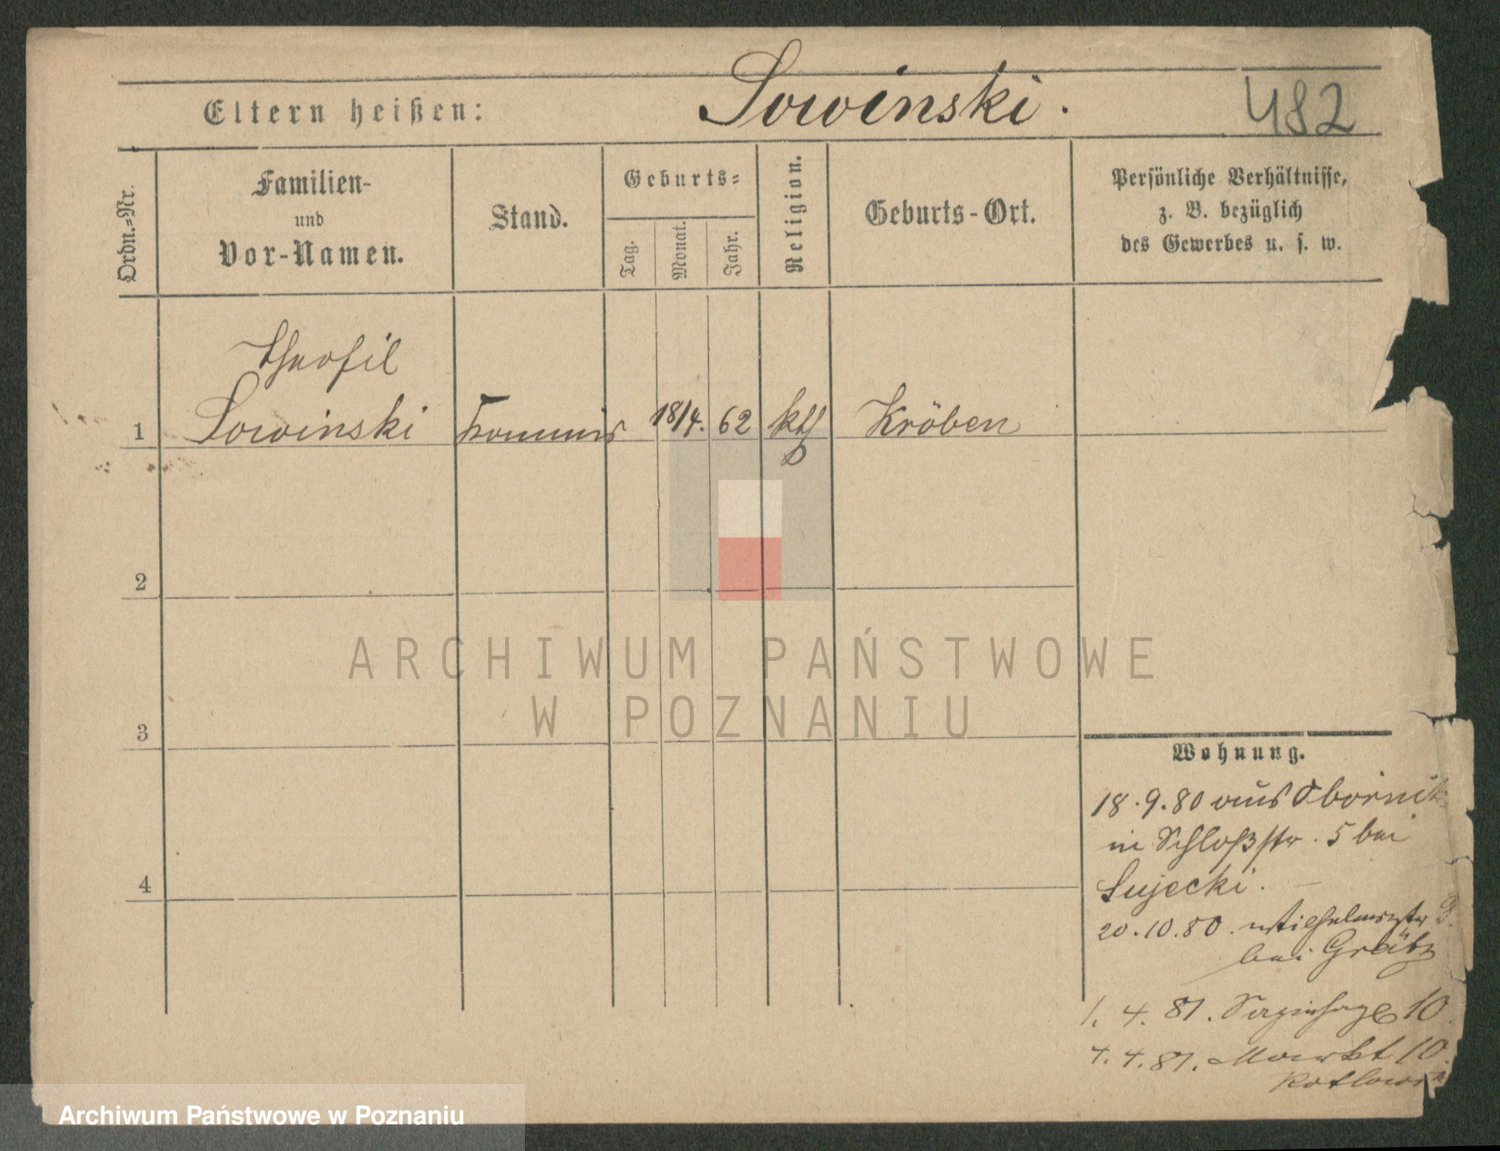 Eltern heißen: Sowinski. 482
Ordn.-Nr.
Familien-
und
Vor-Namen.
Stand.
Geburts-
Tag.
Monat.
Jahr.
Religion.
Geburts-Ort.
Persönliche Verhältnisse,
z. B. bezüglich
des Gewerbes u. s. w.
Theofil
1 Sowinski Kommis 18/4. 62 kth Kröben
2
3
4
Wohnung.
18.9.80 aus Obornik
in Schloßstr. 5 bei
Sujecki.
20.10.80. Wilhelmstr
bei Grätz
1. 4. 81. 10
4. 4. 81. Markt 10.
ARCHIWUM PAŃSTWOWE
W POZNANIU
Archiwum Państwowe w Poznaniu